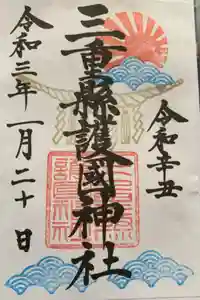 令和辛丑
三重縣護國神社
令和三年一月二十日